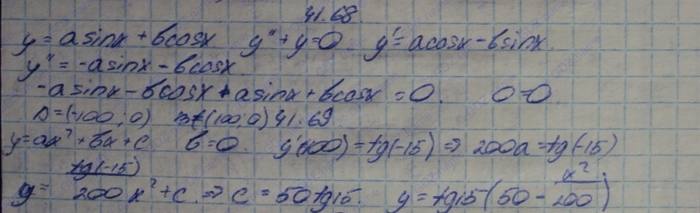 41.68
y = asinx + bcosx   y'' + y = 0.   y' = acosx - bsinx.
y'' = -asinx - bcosx.
-asinx - bcosx + asinx + bcosx = 0.   0=0.
D=(-100; 0)   (100; 0) 41.69.
y = ax² + bx + c   b = 0.   y'(100) = tg(-15) ⇒ 200a = tg(-15)
y = tg(-15)/200 x² + c ⇒ c = 50tg15.   y = tg15(50 - x²/200)